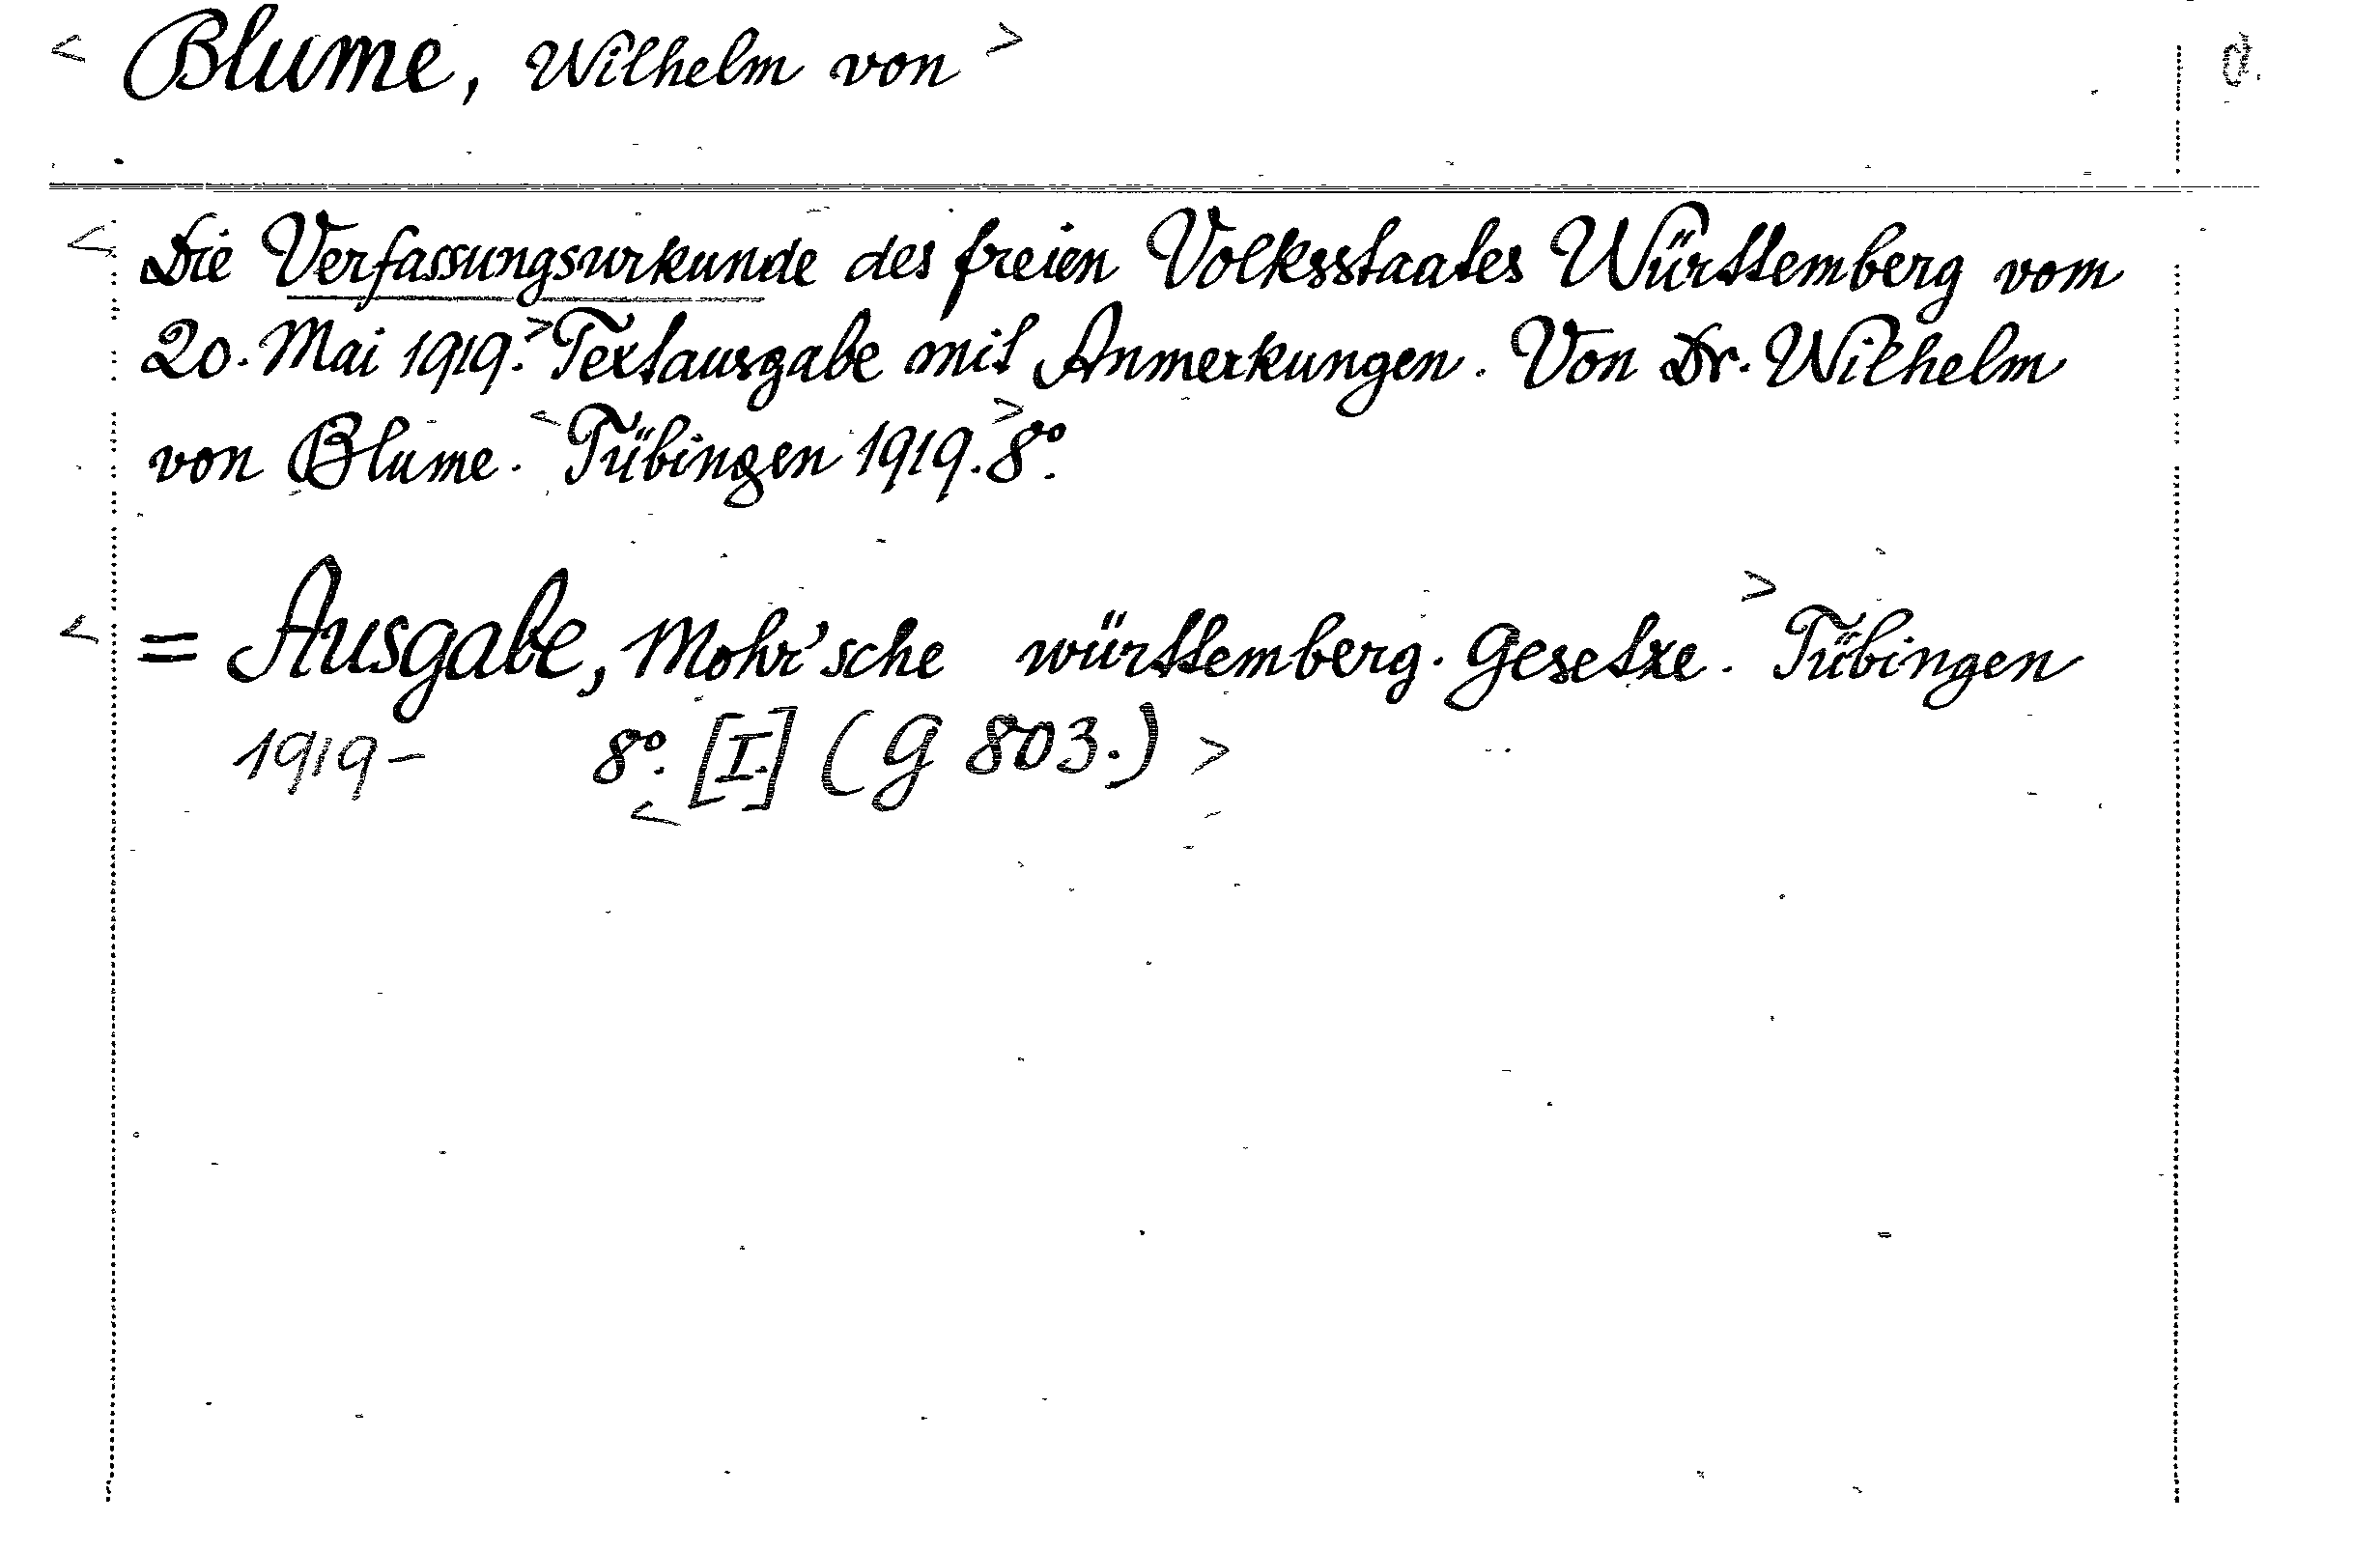 < Blume, Wilhelm von > d.
< Die Verfassungsurkunde des freien Volksstaates Württemberg vom
20. Mai 1919.> Textausgabe mit Anmerkungen. Von Dr. Wilhelm
von Blume. < Tübingen 1919. > 8°.
< = Ausgabe, Mohr'sche württemberg. Gesetze. > Tübingen
1919- 8°. < [I.] (G 803.) >